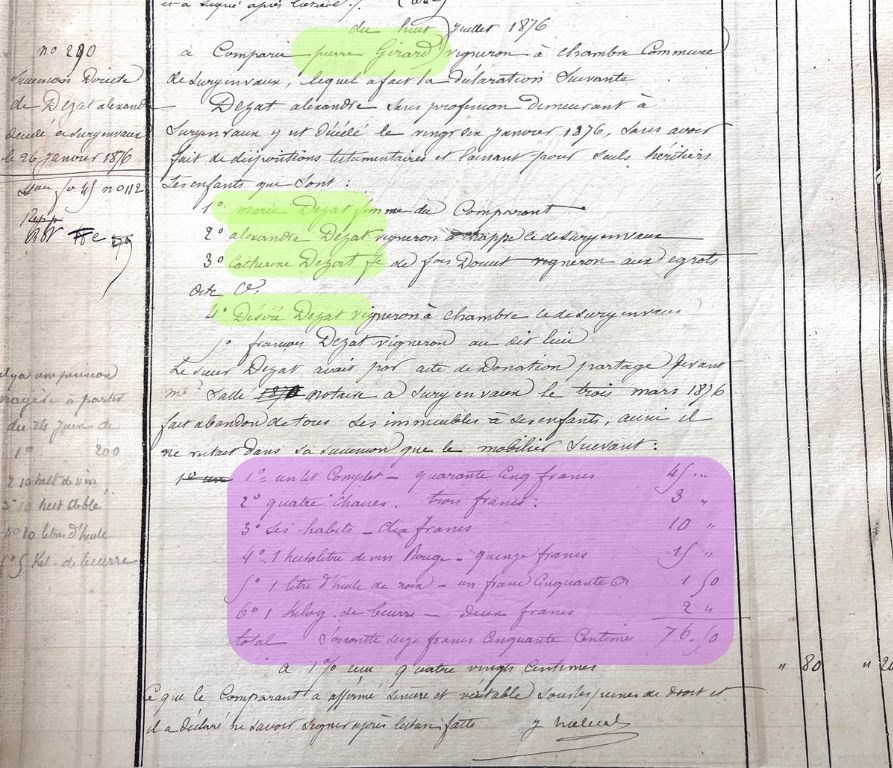 et a signé après lecture ./.
du huit juillet 1876
n° 290
Succession Directe
de Dezat alexandre
décédé à Suryenvaux
le 26 janvier 1876
n° 112
a Comparu pierre Girard vigneron à chambre Commune
de Suryenvaux, lequel a fait la déclaration Suivante
Dezat alexandre Sans profession demeurant à
Suryenvaux y est Décédé le vingt Six janvier 1876, Sans avoir
fait de dispositions testamentaires et laissant pour Seuls héritiers
Ses enfants que Sont :
1° marie Dezat femme du Comparant
2° alexandre Dezat vigneron à chappe ledesuryenvaux
3° Catherine Dezat fe de fois Doucet vigneron aux egrots
dite Ce
4° Désiré Dezat vigneron à Chambre ledesuryenvaux
5° francois Dezat vigneron au dit lieu
Le Sieur Dezat avait par acte de Donation partage Devant
me Salle 1870 notaire à Suryenvaux le trois mars 1876
fait abandon de tous Ses immeubles à Ses enfants, aussi il
ne restait dans Sa Succession que le mobilier Suivant :
1° un 1° un lit Complet – quarante Cinq francs 45 "
2° quatre chaises . trois francs . 3 "
3° Ses habits – dix francs 10 "
4° 1 hectolitre de vin Rouge – quinze francs 15 "
5° 1 litre d'huile de noix – un franc Cinquante Ces 1 50
6° 1 kilog. de beurre – deux francs 2 "
total Soixante Seize francs Cinquante Centimes 76.50
à 1% un quatre vingts Centimes " 80
Ce que le Comparant a affirmé Sincère et véritable Sous les peines de droit et
il a déclaré ne savoir Signer après lecture faite
il y a une pension
viagère à partir
du 24 juin de
1° 200
2 10 hect de vin
3° 10 hect de blé
4° 10 litres d'huile
5° 5 Kil. de beurre